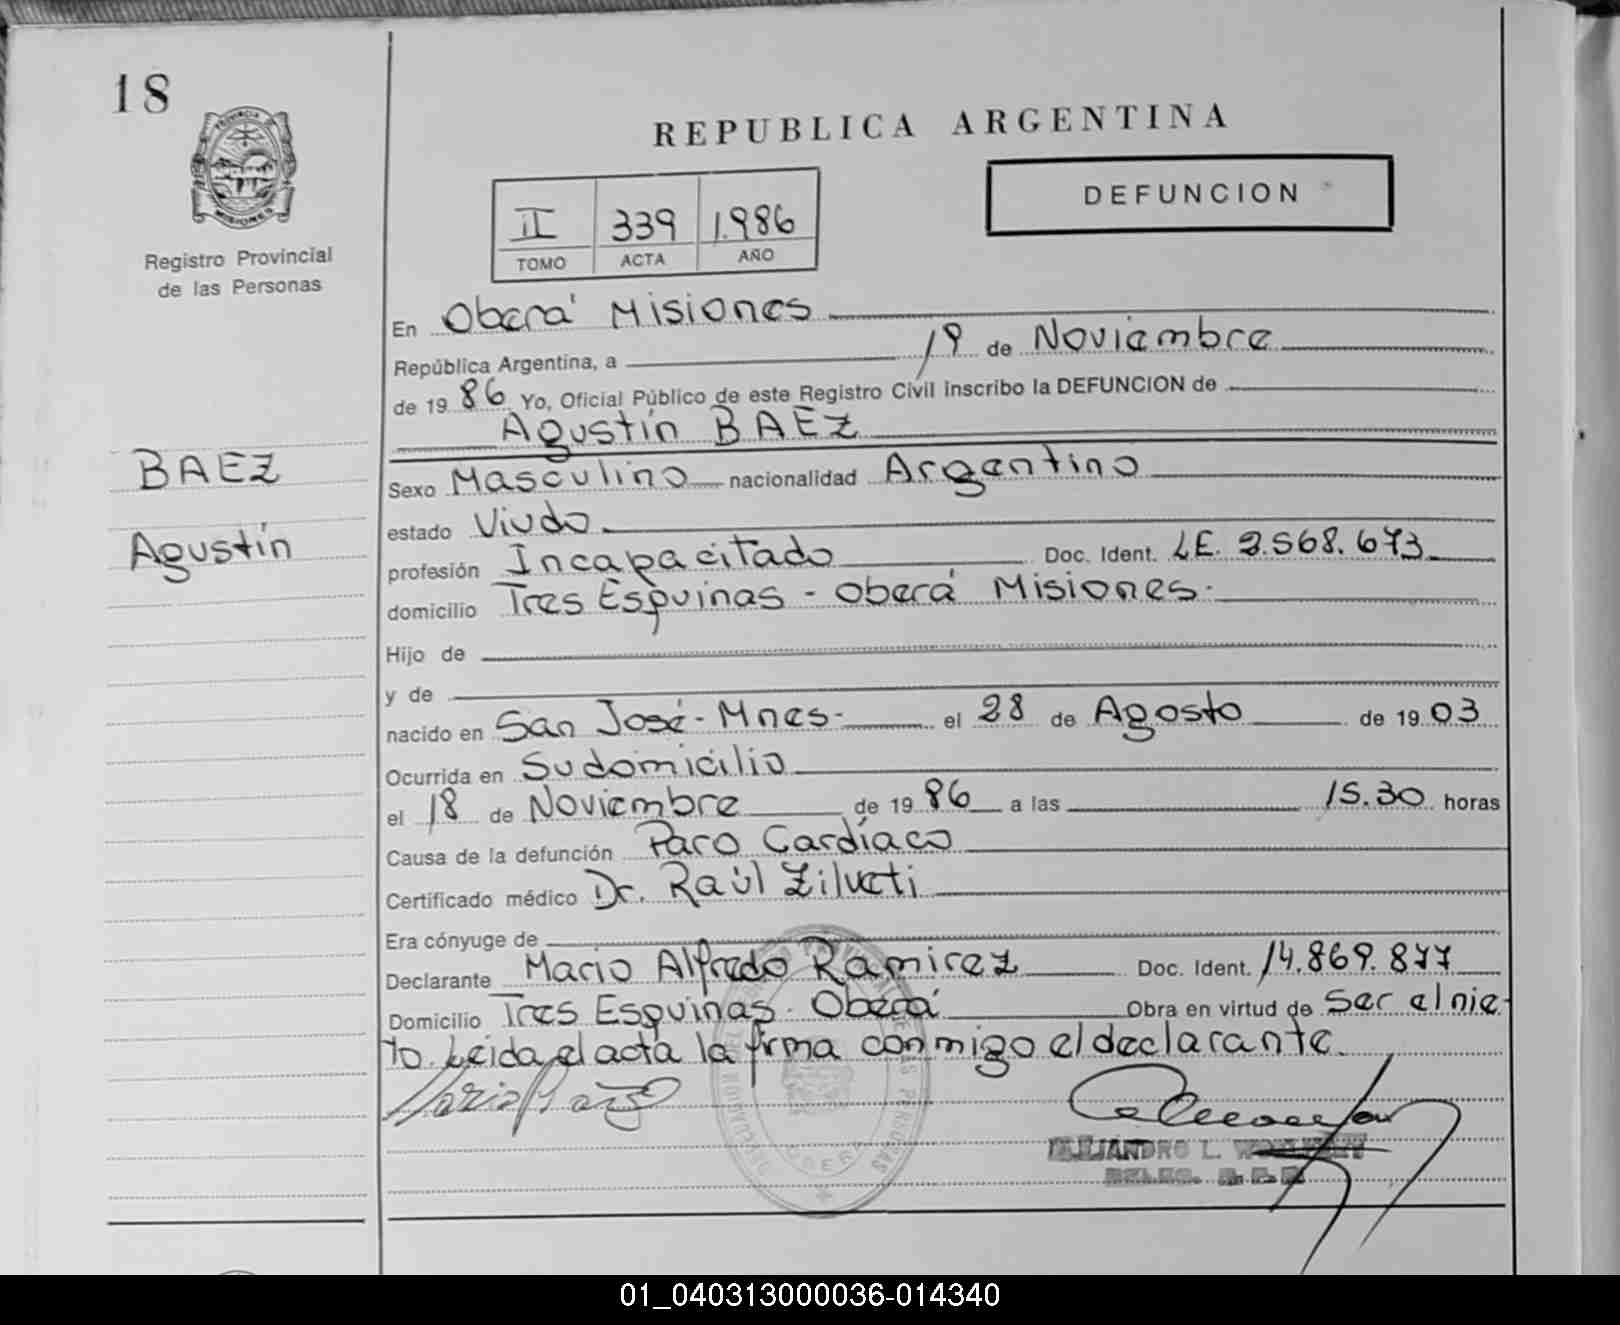 18
REPUBLICA ARGENTINA
DEFUNCION
II 339 1.986
TOMO ACTA AÑO
Registro Provincial
de las Personas
BAEZ
Agustín
En Oberá Misiones
República Argentina, a 19 de Noviembre
de 1986 Yo, Oficial Público de este Registro Civil inscribo la DEFUNCION de
Agustín BAEZ
Sexo Masculino nacionalidad Argentino
estado Viudo.
profesión Incapacitado Doc. Ident. LE. 2.568.673
domicilio Tres Esquinas - Oberá Misiones.
Hijo de
y de
nacido en San José - Mnes- el 28 de Agosto de 1903
Ocurrida en Su domicilio
el 18 de Noviembre de 1986 a las 15.30 horas
Causa de la defunción Paro Cardíaco
Certificado médico Dr. Raúl Zilveti
Era cónyuge de
Declarante Mario Alfredo Ramirez Doc. Ident. 14.869.877
Domicilio Tres Esquinas. Oberá Obra en virtud de Ser el nie-
to. Leida el acta la firma conmigo el declarante.
ALEJANDRO L.
01_040313000036-014340